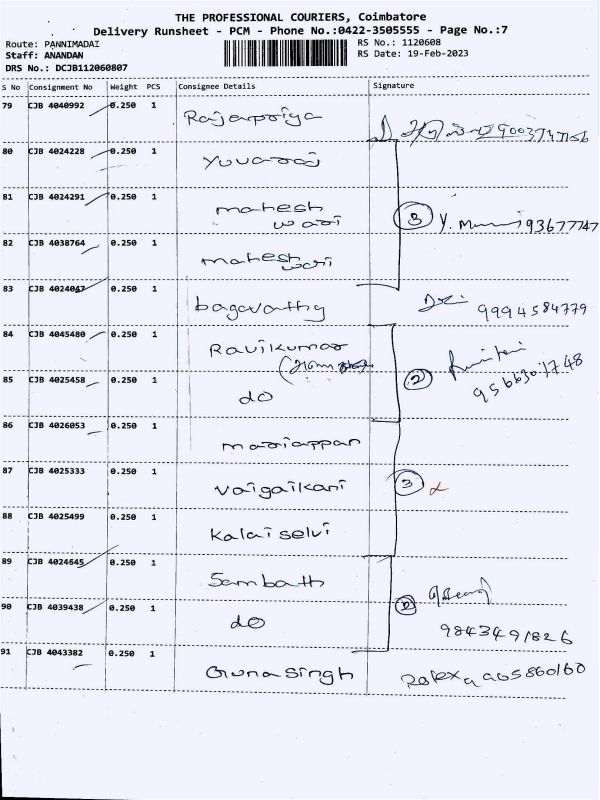 THE PROFESSIONAL COURIERS, Coimbatore
Delivery Runsheet - PCM - Phone No.:0422-3505555 - Page No.:7
Route: PANNIMADAI RS No.: 1120608
Staff: ANANDAN RS Date: 19-Feb-2023
DRS No.: DCJB112060807
S No Consignment No Weight PCS Consignee Details Signature
79 CJB 4040992 0.250 1 Rajarpriya
80 CJB 4024228 0.250 1 Yuvaraj
81 CJB 4024291 0.250 1 mahesh
wari
3 Y. 93677747
82 CJB 4038764 0.250 1 mahesh
wari
83 CJB 4024047 0.250 1 bagavathy 9994584779
84 CJB 4045480 0.250 1 Ravikumar
85 CJB 4025458 0.250 1 do 2
86 CJB 4026053 0.250 1 mariappan
87 CJB 4025333 0.250 1 vaigaikani 3
88 CJB 4025499 0.250 1 Kalaiselvi
89 CJB 4024645 0.250 1 Sambath
90 CJB 4039438 0.250 1 do 9843491826
91 CJB 4043382 0.250 1 Gunasingh